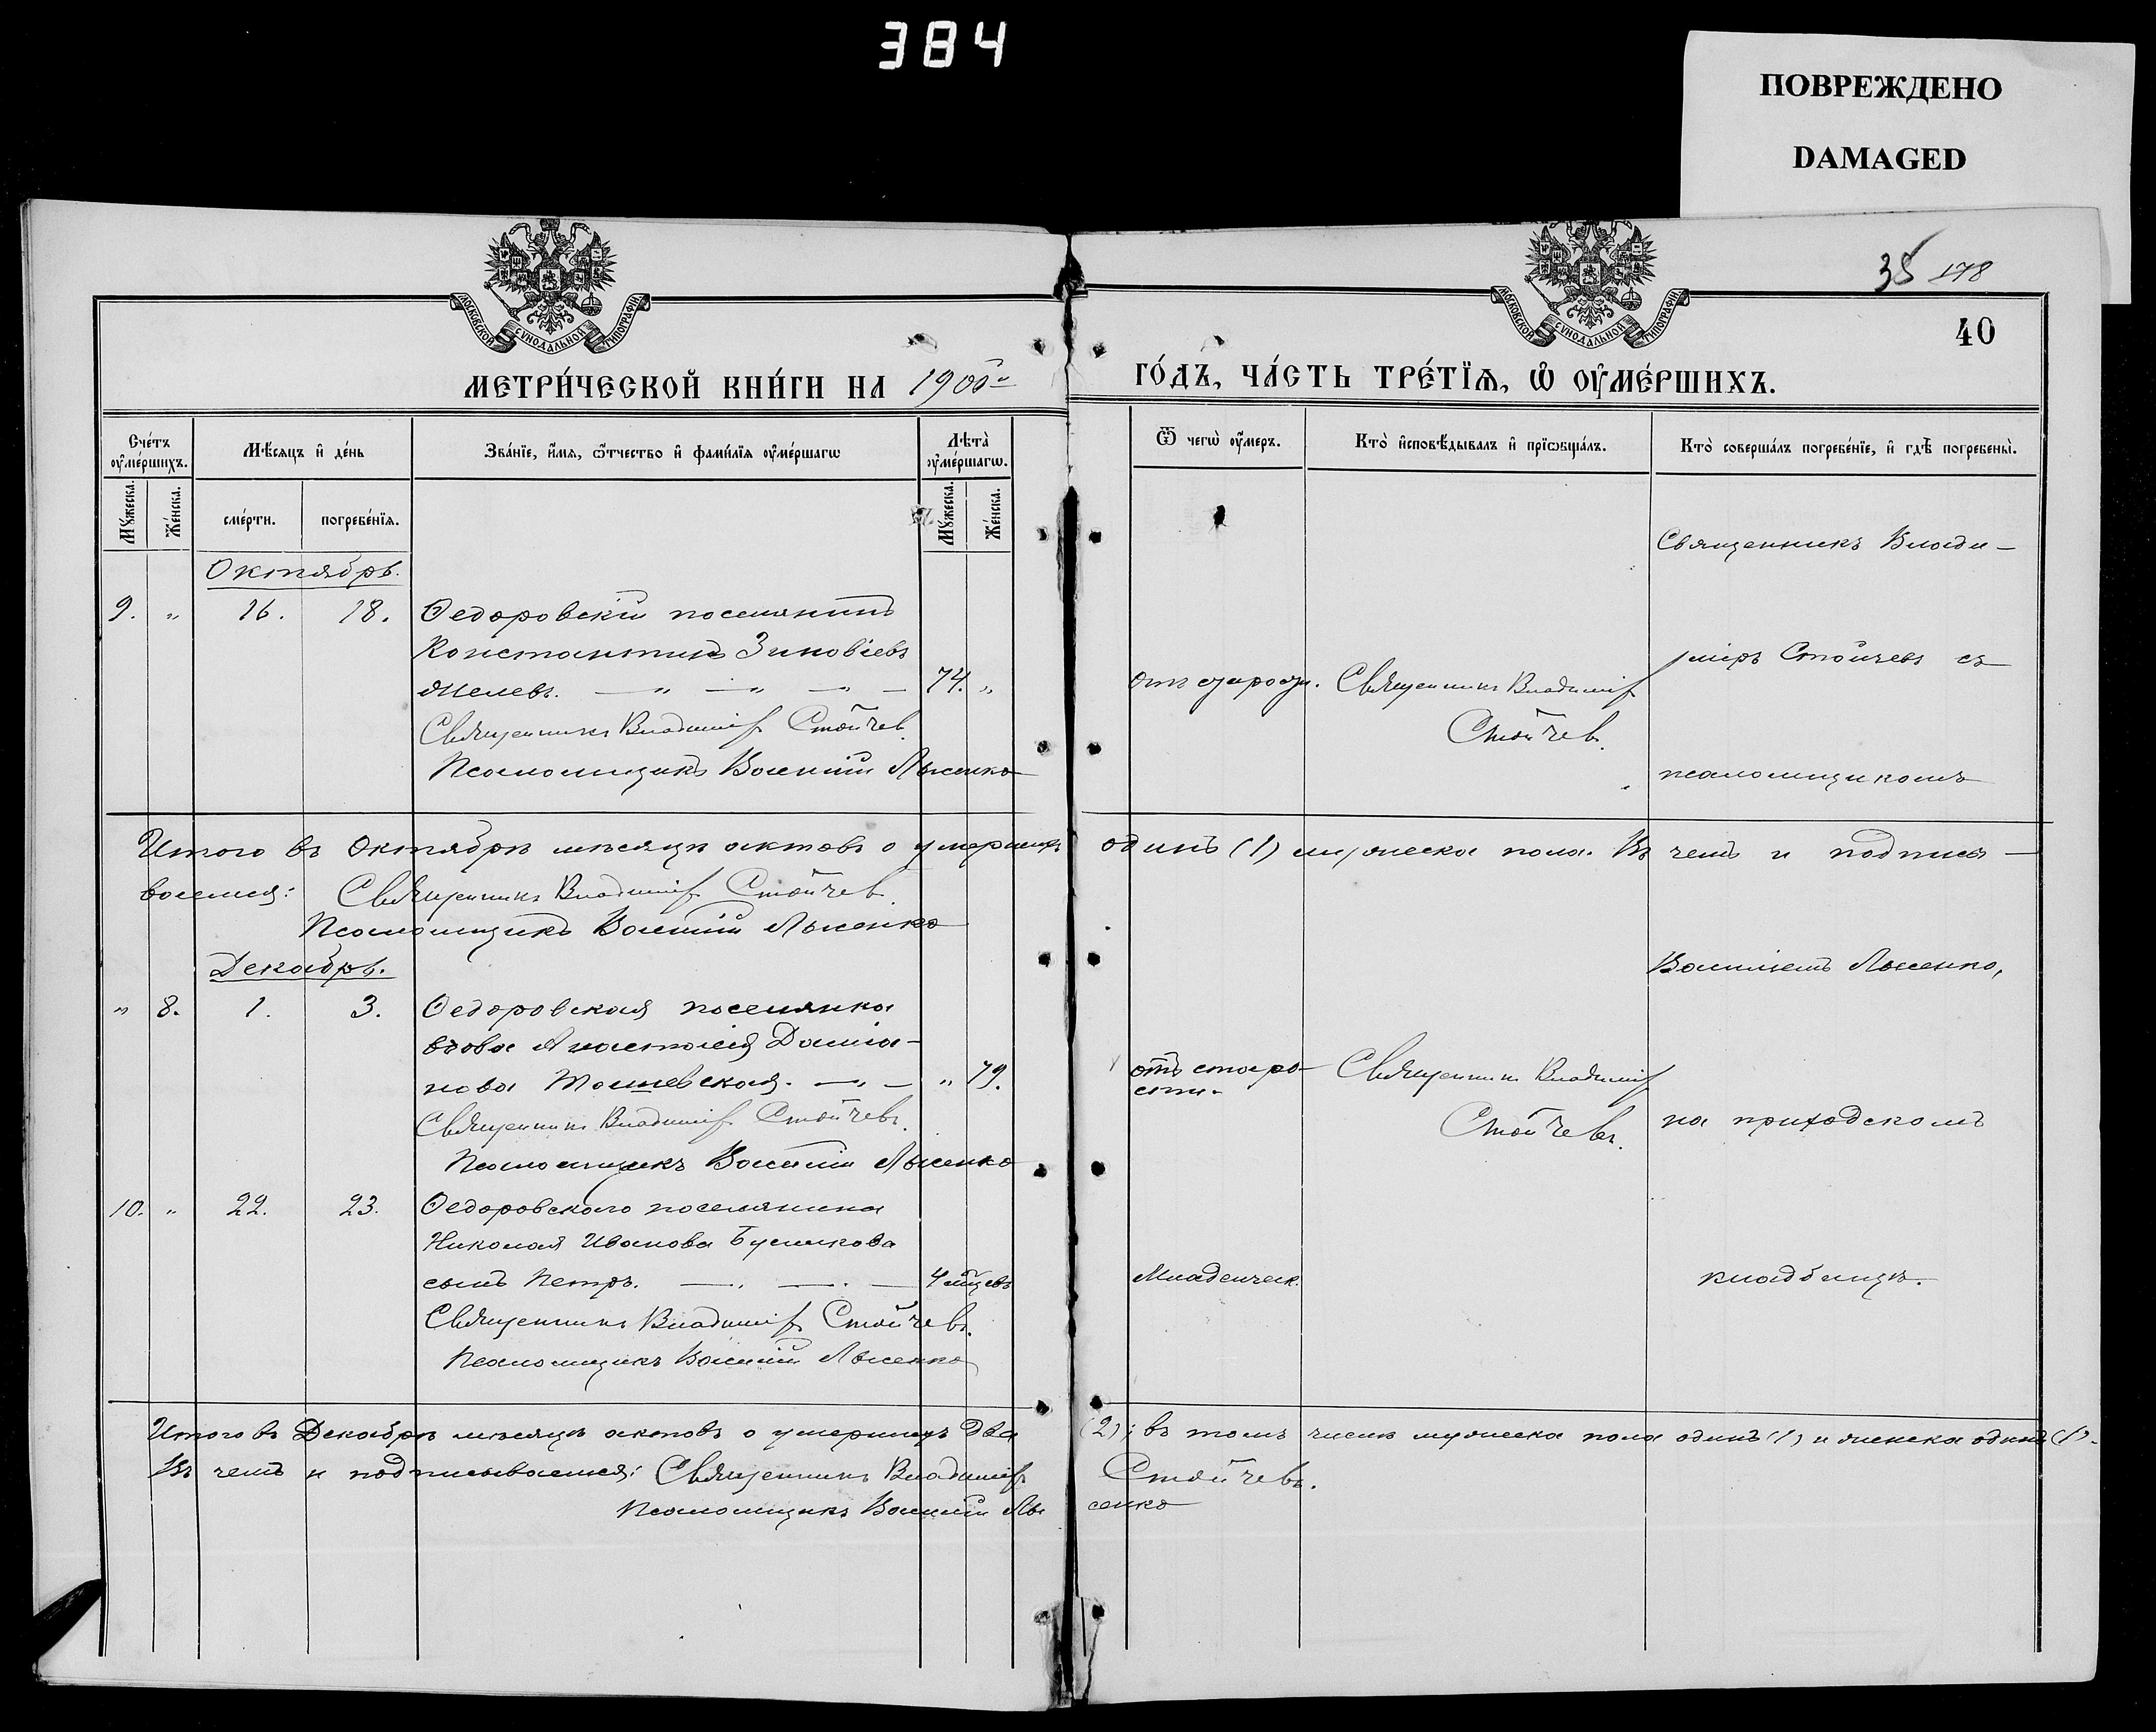 384
ПОВРЕЖДЕНО
DAMAGED
МОСКОВСКОЙ СѴНОДАЛЬНОЙ ТИПОГРАФІИ
МОСКОВСКОЙ СѴНОДАЛЬНОЙ ТИПОГРАФІИ
178
40
МЕТРИ́ЧЕСКОЙ КНИ́ГИ НА
ГО́ДЪ, ЧА́СТЬ ТРЕ́ТІѦ, Ѡ҆ ОУ҆МЕ́РШИХЪ.
Сче́тъ оу҆ме́ршихъ.
Мѣ́сѧцъ и҆ де́нь
Зва́нїе, и҆́мѧ, ѻ҆́тчество и҆ фами́лїѧ оу҆ме́ршагѡ
Лѣта̀ оу҆ме́ршагѡ.
Ѿ чегѡ̀ оу҆́меръ.
Кто̀ и҆сповѣ́дывалъ и҆ прїѡбща́лъ.
Кто̀ соверша́лъ погребе́нїе, и҆ гдѣ̀ погребены̀.
Мꙋ́жеска.
Же́нска.
сме́рти.
погребе́нїѧ.
Мꙋ́жеска.
Же́нска.
Октябрь.
9. " 16. 18. Ѳедоровскій поселянинъ
Константинъ Зиновіевъ
Желевъ. — " — " — " — 74. "
Священникъ Владиміръ Стойчевъ.
Псаломщикъ Василій Лысенко
отъ старости.
Священникъ Владиміръ
Стойчевъ.
Священникъ Влади-
міръ Стойчевъ съ
псаломщикомъ
Итого въ Октябрѣ мѣсяцѣ актовъ о умершихъ одинъ (1) мужеска пола. Въ чемъ и подписы-
ваемся: Священникъ Владиміръ Стойчевъ.
Псаломщикъ Василій Лысенко
Декабрь.
Василіемъ Лысенко,
" 8. 1. 3. Ѳедоровская поселянка
вдова Анастасія Даміа-
нова — " — " 79.
Священникъ Владиміръ Стойчевъ.
Псаломщикъ Василій Лысенко
отъ старо-
сти.
Священникъ Владиміръ
Стойчевъ.
на приходскомъ
10. " 22. 23. Ѳедоровскаго поселянина
Николая Иванова
сынъ Петръ. — " — " — 4 мѣсяцевъ
Священникъ Владиміръ Стойчевъ.
Псаломщикъ Василій Лысенко
Младенческ.
кладбищѣ.
Итого въ Декабрѣ мѣсяцѣ актовъ о умершихъ два (2); въ томъ числѣ мужеска пола одинъ (1) и женска одинъ (1).
Въ чемъ и подписываемся: Священникъ Владиміръ Стойчевъ.
Псаломщикъ Василій Лысенко